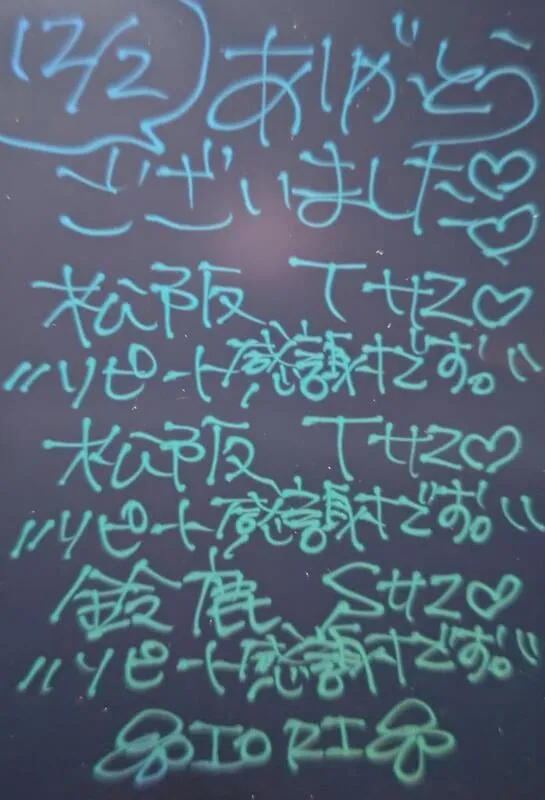 12/2 ありがとう
ございました♡♡
松阪 Tサン♡
〃リピート感謝です。〃
松阪 Tサン♡
〃リピート感謝です。〃
鈴鹿 Sサン♡
〃リピート感謝です。〃
IORI